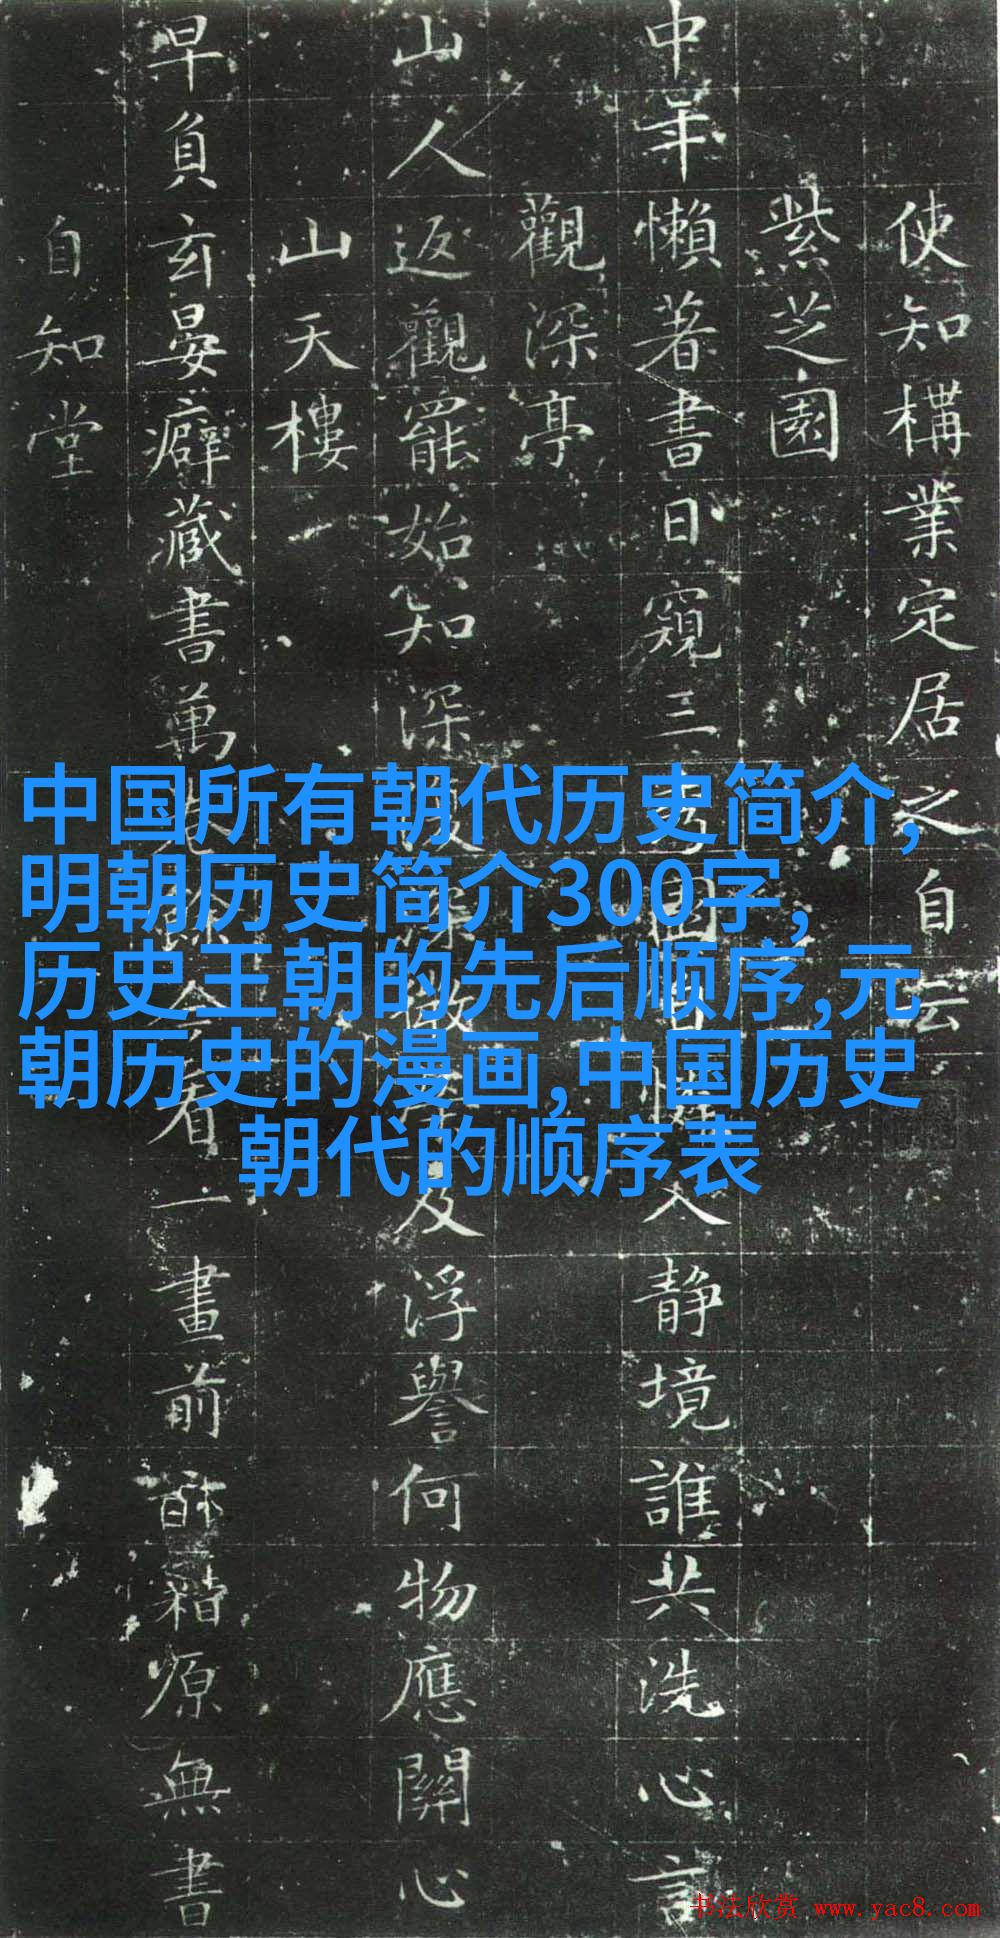 使知構業定居之自云
紫芝園
中年懶著書日窺三園入静境誰共洗心言
觀深亭
山人返觀罷始知深深及浮譽何物應關心
山天樓
早負玄晏癖藏書萬看一畫前籍原無書
自知堂
中国所有朝代历史简介,
明朝历史简介300字,
历史王朝的先后顺序,元
朝历史的漫画,中国历史
朝代的顺序表
书法欣赏 www.yac8.com